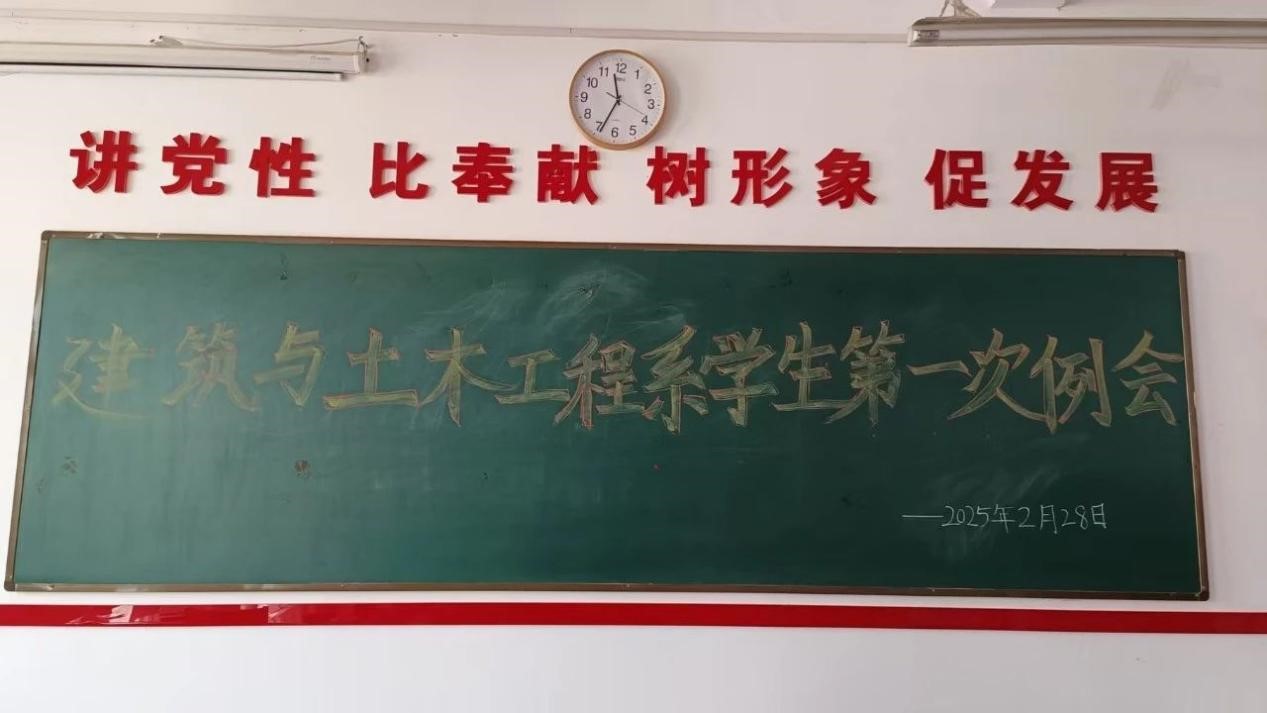 12 1 2 3 4 5 6 7 8 9 10 11
讲党性 比奉献 树形象 促发展
建筑与土木工程系学生第一次例会
——2025年2月28日